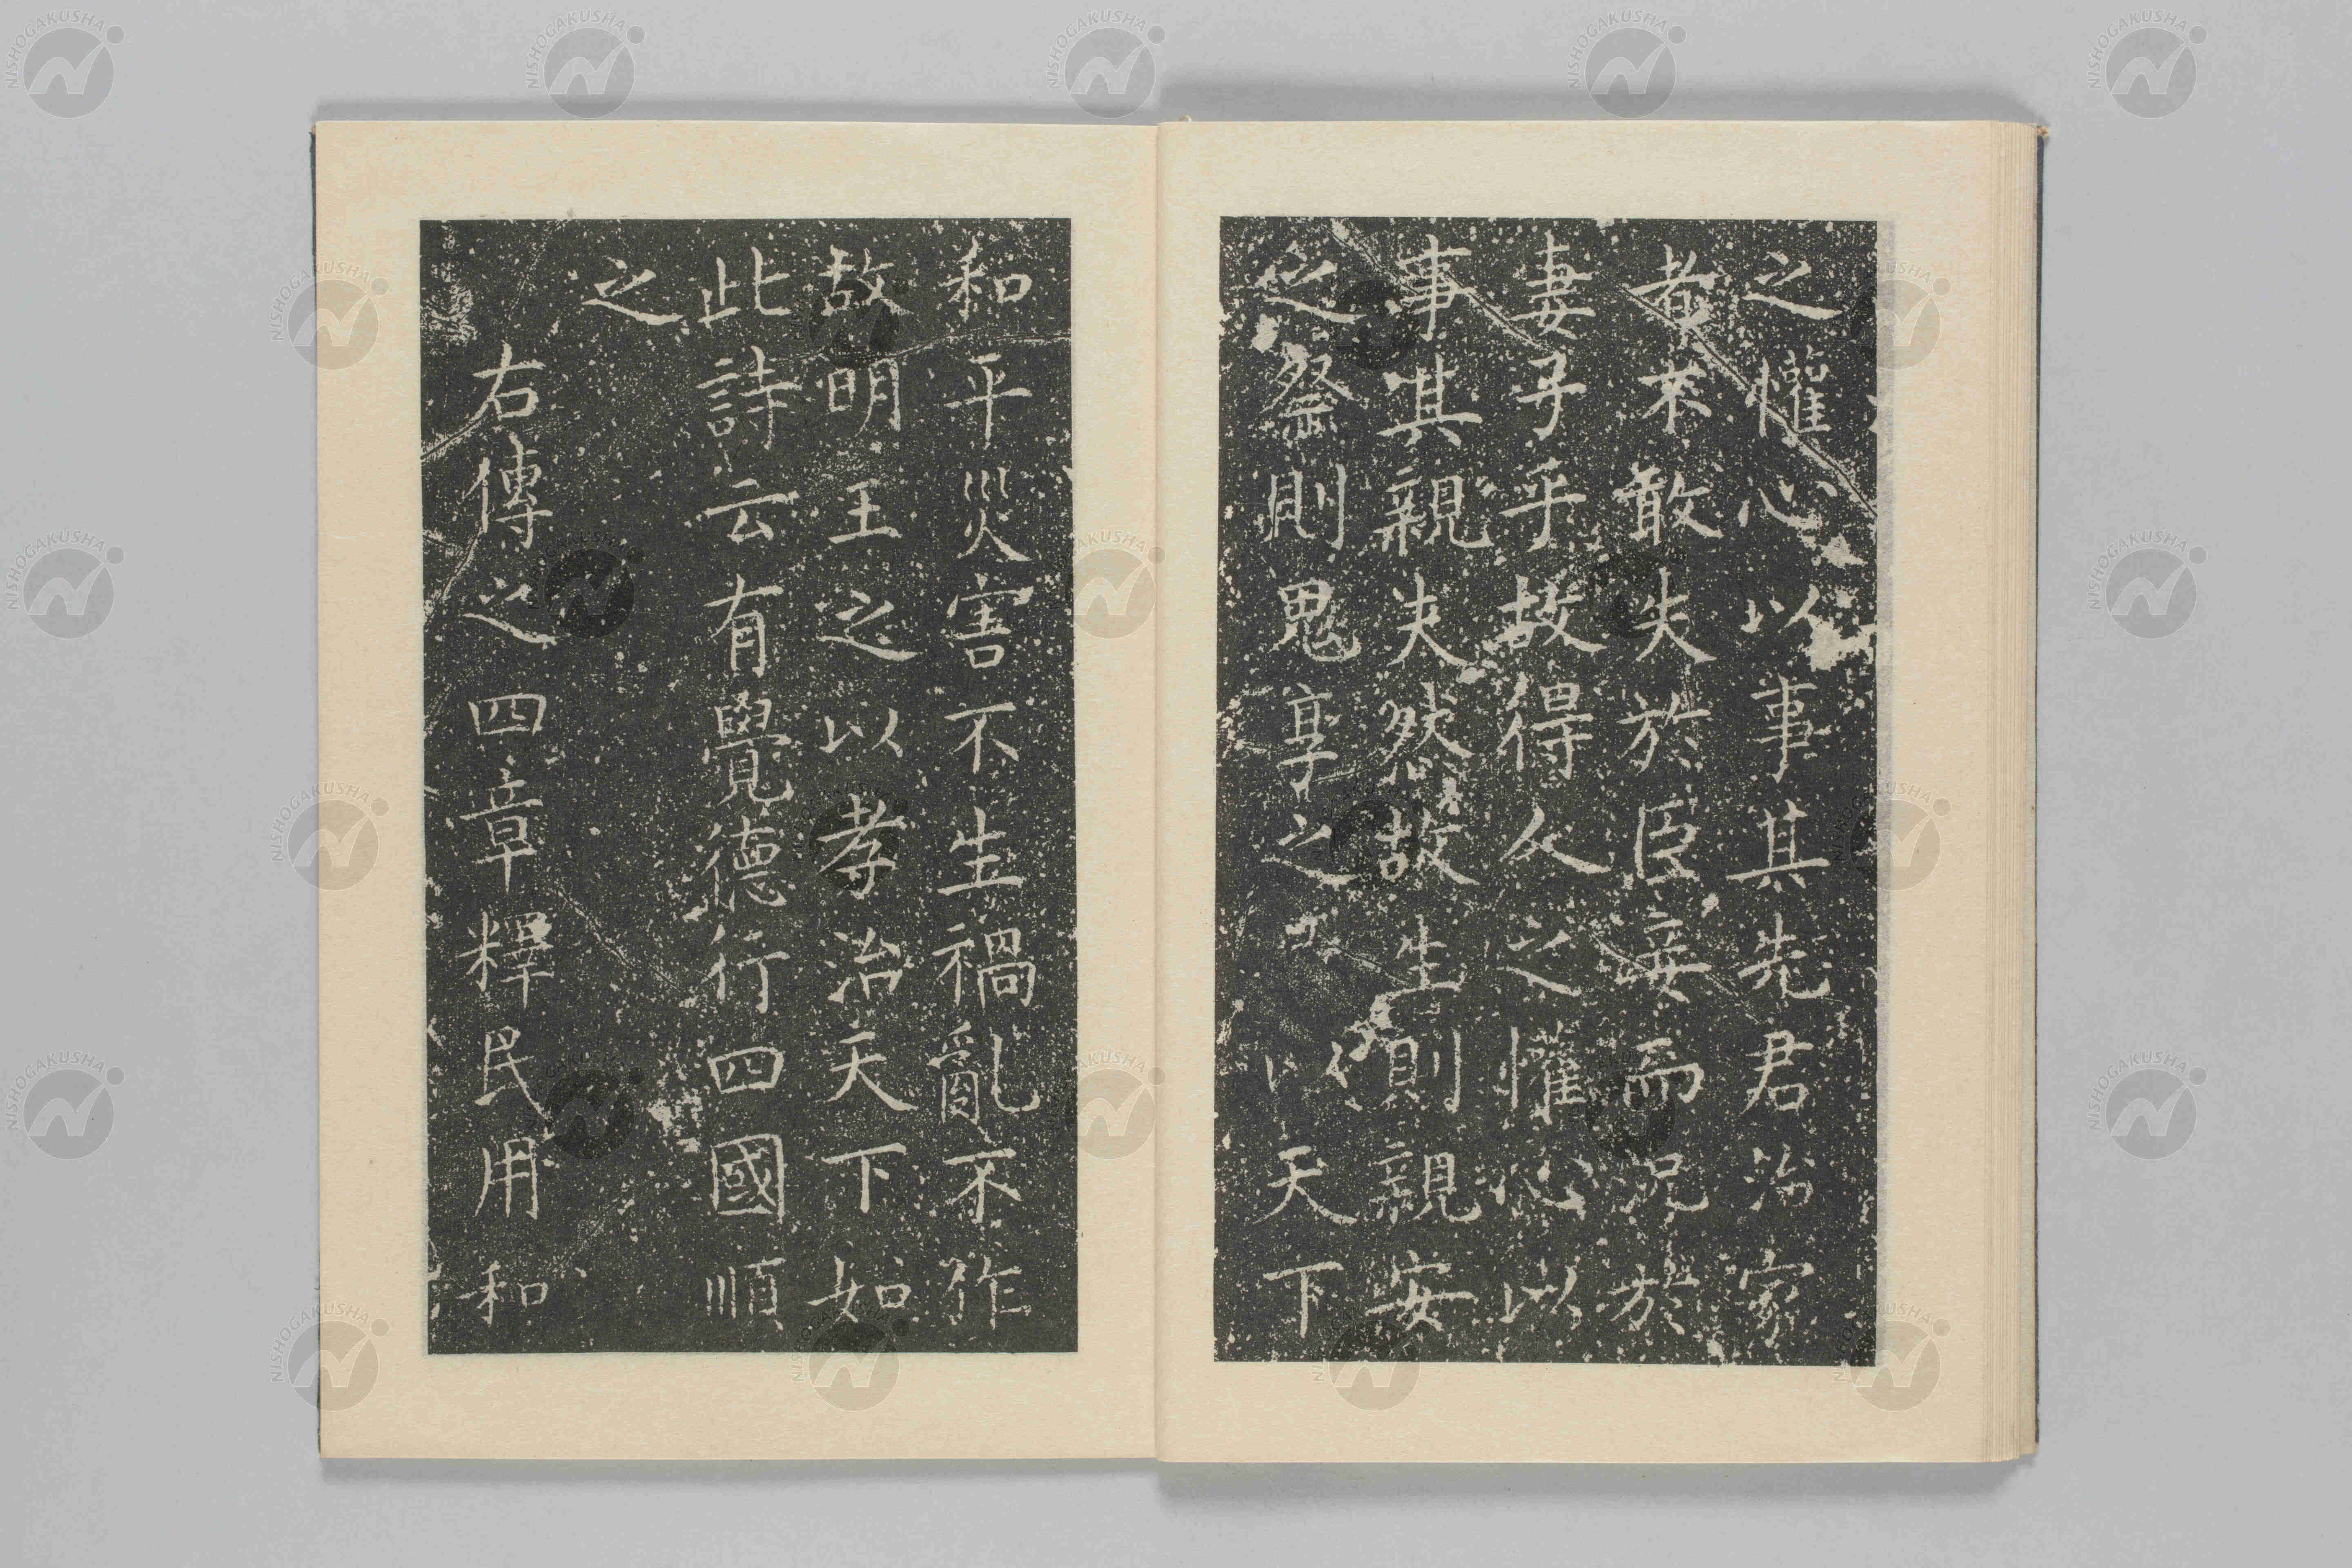 之懽心以事其先君治家
者不敢失於臣妾而况於
妻子乎故得人之懽心以
事其親夫然故生則親安
之祭則鬼享之 以天下
和平災害不生禍亂不作
故明王之以孝治天下如
此詩云有覺德行四國順
之
右傳之四章釋民用和
NISHOGAKUSHA